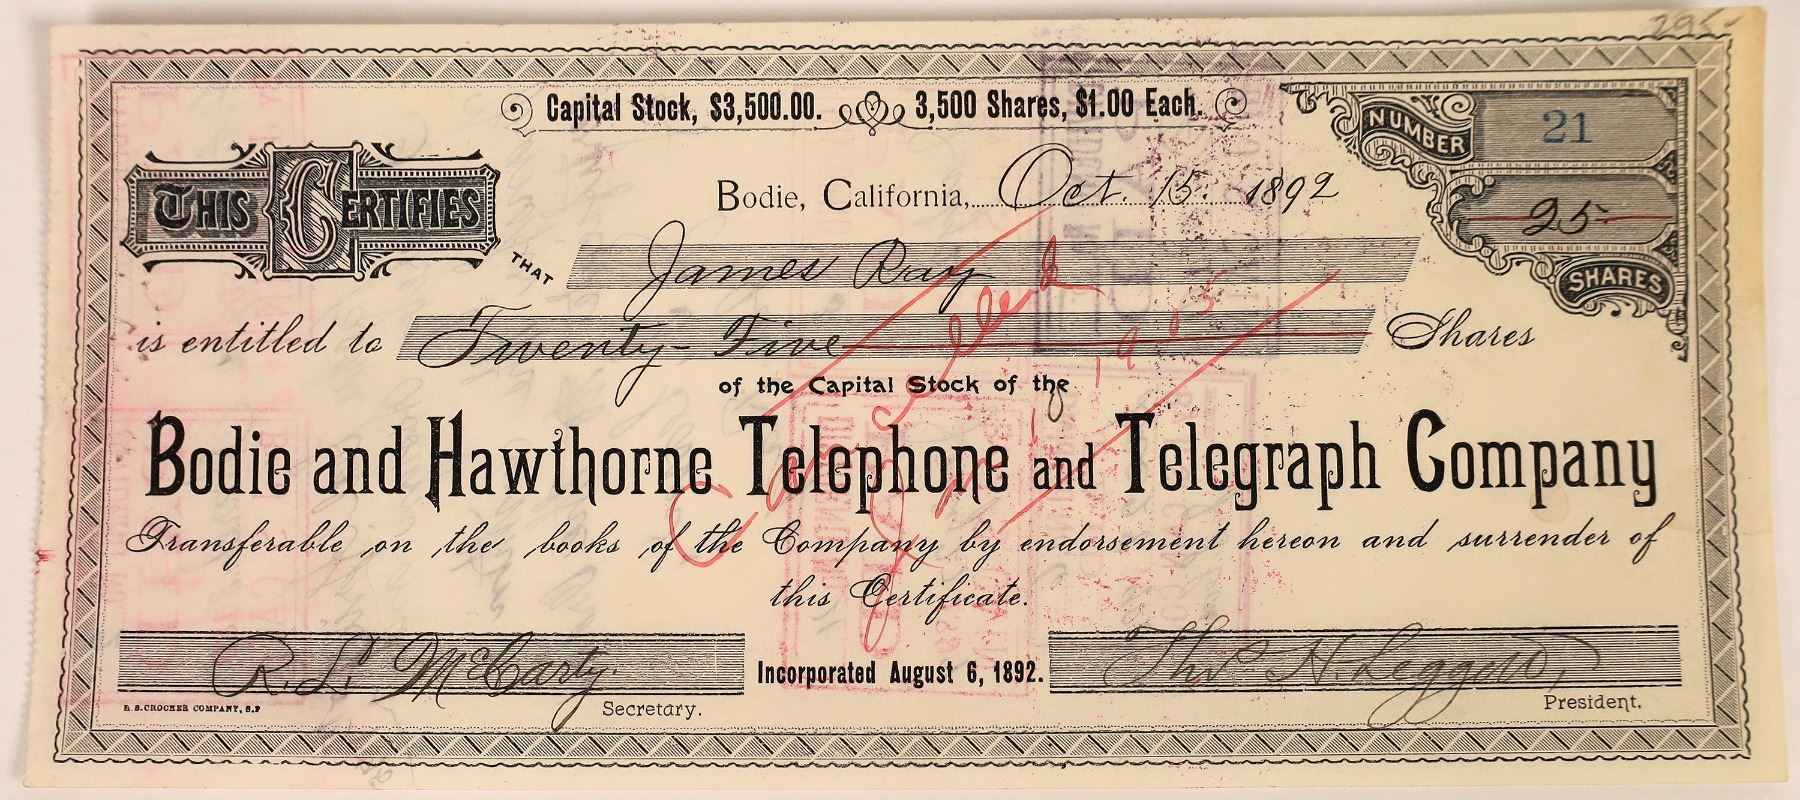 295
Capital Stock, $3,500.00. 3,500 Shares, $1.00 Each.
NUMBER 21
Bodie, California, Oct. 15. 1892
25
SHARES
THIS CERTIFIES
THAT James Ray
is entitled to Twenty-Five Shares
of the Capital Stock of the
Bodie and Hawthorne Telephone and Telegraph Company
Transferable on the books of the Company by endorsement hereon and surrender of
this Certificate.
Cancelled
1905
R. L. McCarty.
Incorporated August 6, 1892.
Tho's H. Leggett
H.S.CROCKER COMPANY, S.F
Secretary.
President.